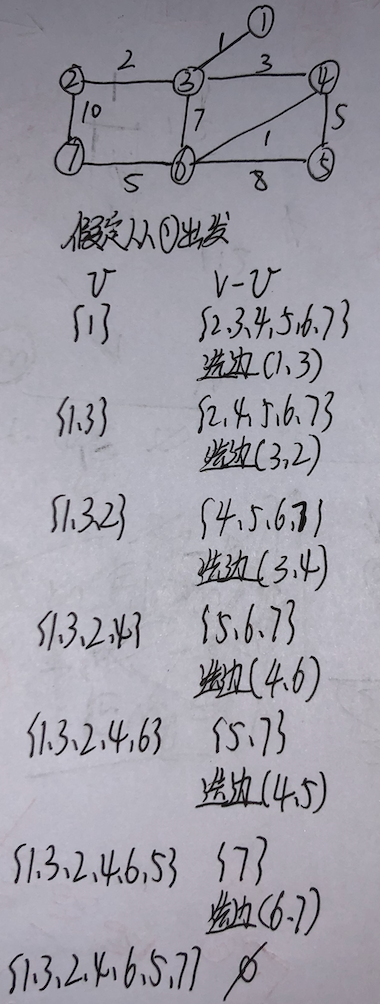 ①
1
2
3
②
③
④
10
7
1
5
⑦
⑥
⑤
5
8
假定从①出发
U V-U
{1} {2、3、4、5、6、7}
选边(1、3)
{1、3} {2、4、5、6、7}
选边(3、2)
{1、3、2} {4、5、6、7}
选边(3、4)
{1、3、2、4} {5、6、7}
选边(4、6)
{1、3、2、4、6} {5、7}
选边(4、5)
{1、3、2、4、6、5} {7}
选边(6、7)
{1、3、2、4、6、5、7} ∅